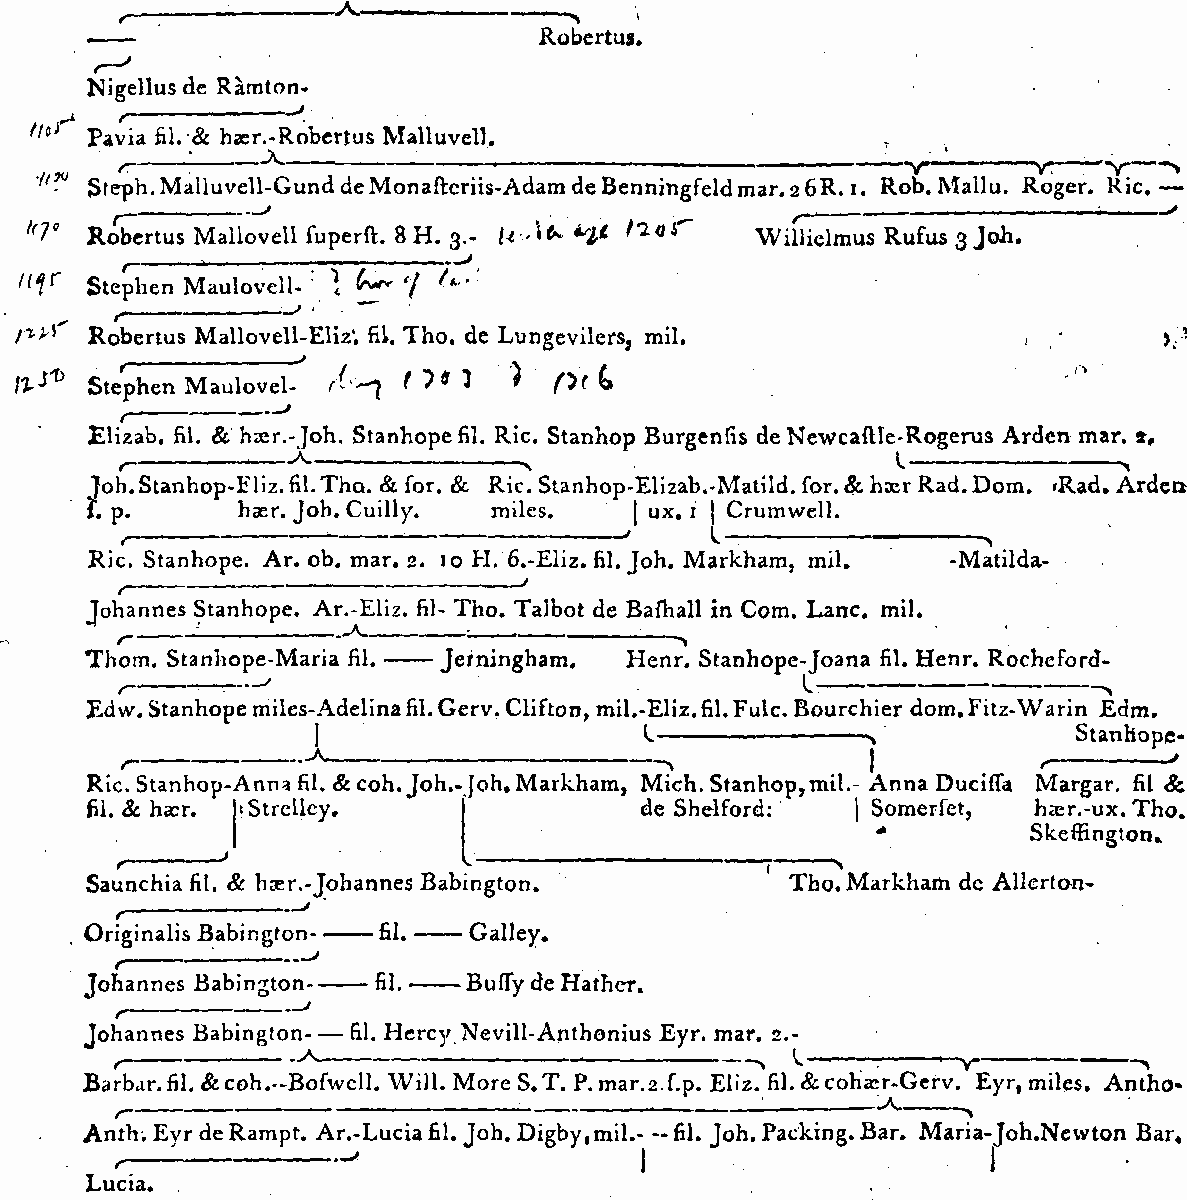 Robertus.
Nigellus de Ràmton-
1105 Pavia fil. & hær.-Robertus Malluvell.
Steph. Malluvell-Gund de Monaſteriis-Adam de Benningfeld mar. 2 6 R. 1. Rob. Mallu. Roger. Ric. —
1170 Robertus Mallovell ſuperſt. 8 H. 3.- age 1205 Willielmus Rufus 3 Joh.
1195 Stephen Maulovell-
1225 Robertus Mallovell-Eliz. fil. Tho. de Lungevilers, mil.
1250 Stephen Maulovel-
Elizab. fil. & hær.-Joh. Stanhope fil. Ric. Stanhop Burgenſis de Newcaſtle-Rogerus Arden mar. 2,
Joh. Stanhop-Eliz. fil. Tho. & ſor. & Ric. Stanhop-Elizab.-Matild. ſor. & hær Rad. Dom. Rad. Arden
ſ. p. hær. Joh. Cuilly. miles. ux. 1 Crumwell.
Ric. Stanhope. Ar. ob. mar. 2. 10 H. 6.-Eliz. fil. Joh. Markham, mil. -Matilda-
Johannes Stanhope. Ar.-Eliz. fil- Tho. Talbot de Baſhall in Com. Lanc. mil.
Thom. Stanhope-Maria fil. —— Jerningham. Henr. Stanhope-Joana fil. Henr. Rocheford-
Edw. Stanhope miles-Adelina fil. Gerv. Clifton, mil.-Eliz. fil. Fulc. Bourchier dom. Fitz-Warin Edm.
Stanhope-
Ric. Stanhop-Anna fil. & coh. Joh.-Joh. Markham, Mich. Stanhop, mil.- Anna Duciſſa Margar. fil &
fil. & hær. Strelley. de Shelford: Somerſet, hær.-ux. Tho.
Skeffington.
Saunchia fil. & hær.-Johannes Babington. Tho. Markham de Allerton-
Originalis Babington- —— fil. —— Galley.
Johannes Babington- —— fil. —— Buſſy de Hather.
Johannes Babington- — fil. Hercy Nevill-Anthonius Eyr. mar. 2.-
Barbar. fil. & coh.--Boſwell. Will. More S. T. P. mar. 2. ſ. p. Eliz. fil. & cohær-Gerv. Eyr, miles. Antho-
Anth. Eyr de Rampt. Ar.-Lucia fil. Joh. Digby, mil.- -- fil. Joh. Packing. Bar. Maria-Joh. Newton Bar.
Lucia.